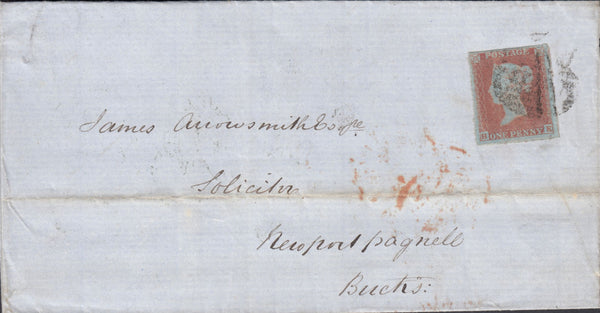 POSTAGE
ONE PENNY
James Arrowsmith Esqre
Solicitor
Newport pagnell
Bucks: